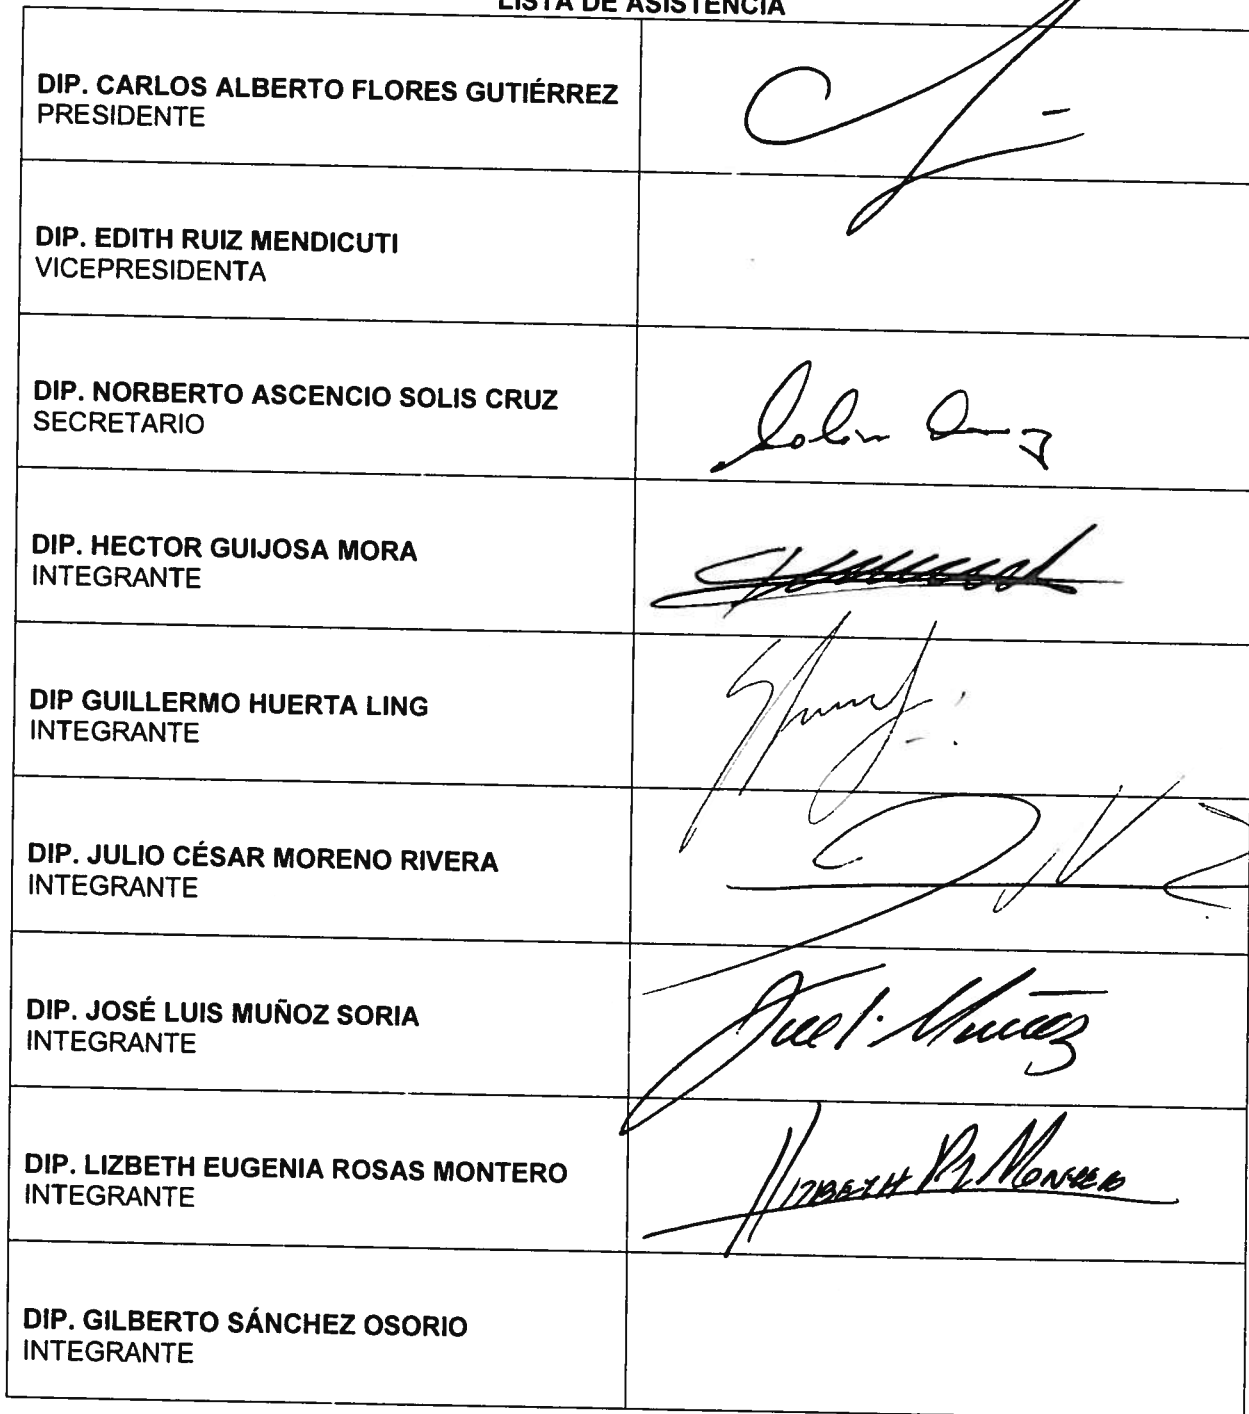 LISTA DE ASISTENCIA
DIP. CARLOS ALBERTO FLORES GUTIÉRREZ
PRESIDENTE
DIP. EDITH RUIZ MENDICUTI
VICEPRESIDENTA
DIP. NORBERTO ASCENCIO SOLIS CRUZ
SECRETARIO
DIP. HECTOR GUIJOSA MORA
INTEGRANTE
DIP GUILLERMO HUERTA LING
INTEGRANTE
DIP. JULIO CÉSAR MORENO RIVERA
INTEGRANTE
DIP. JOSÉ LUIS MUÑOZ SORIA
INTEGRANTE
DIP. LIZBETH EUGENIA ROSAS MONTERO
INTEGRANTE
LIZBETH R. MONTERO
DIP. GILBERTO SÁNCHEZ OSORIO
INTEGRANTE